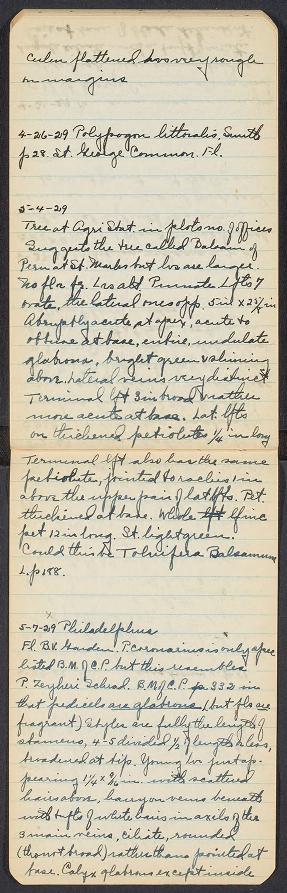 Culm flattened lvs very rough
on margins
4-26-29 Polypogon littoralis, Smith
p 28. St. George Common. Fl.
5-4-29
Tree at Agri Stat. in plots no. of offices
Suggests the tree called Balsam of
Peru at St. Marks but lvs are larger.
No fl or fr. Lvs alt Pinnate Lfts 7
ovate, the lateral ones opp. 5 in x 2 in
Abruptly acute at apex, acute to
obtuse at base, entire, undulate
glabrous, bright green & shining
above. Lateral veins very distinct
Terminal lft 3 in broad & rather
more acute at base. Lat. lfts
on thickened petiolules 1/4 in long
Terminal lft also has the same
petiolule, jointed to rachis 1 in
above the upper pair of lat lfts. Pet.
thickened at base. Whole lf inc
pet 12 in long. St. light green.
Could this be Toluifera Balsamum
L. p 188.
5-7-29 Philadelphus
Fl. B.V. Garden. P. coronarius is only spec
listed B.M. & C.P. but this resembles
P. Zeyheri Schrad. B.M. & C.P. p 332 in
that pedicels are glabrous (but fls are
fragrant) Styles are fully the length of
stamens, 4-5 divided 1/2 of length or less,
broadened at tip. Young lvs just ap-
pearing 1 1/4 x in. with scattered
hairs above, hairy on veins beneath
with tufts of white hairs in axils of the
3 main veins, ciliate, rounded
(tho not broad) rather than pointed at
base. Calyx glabrous except inside